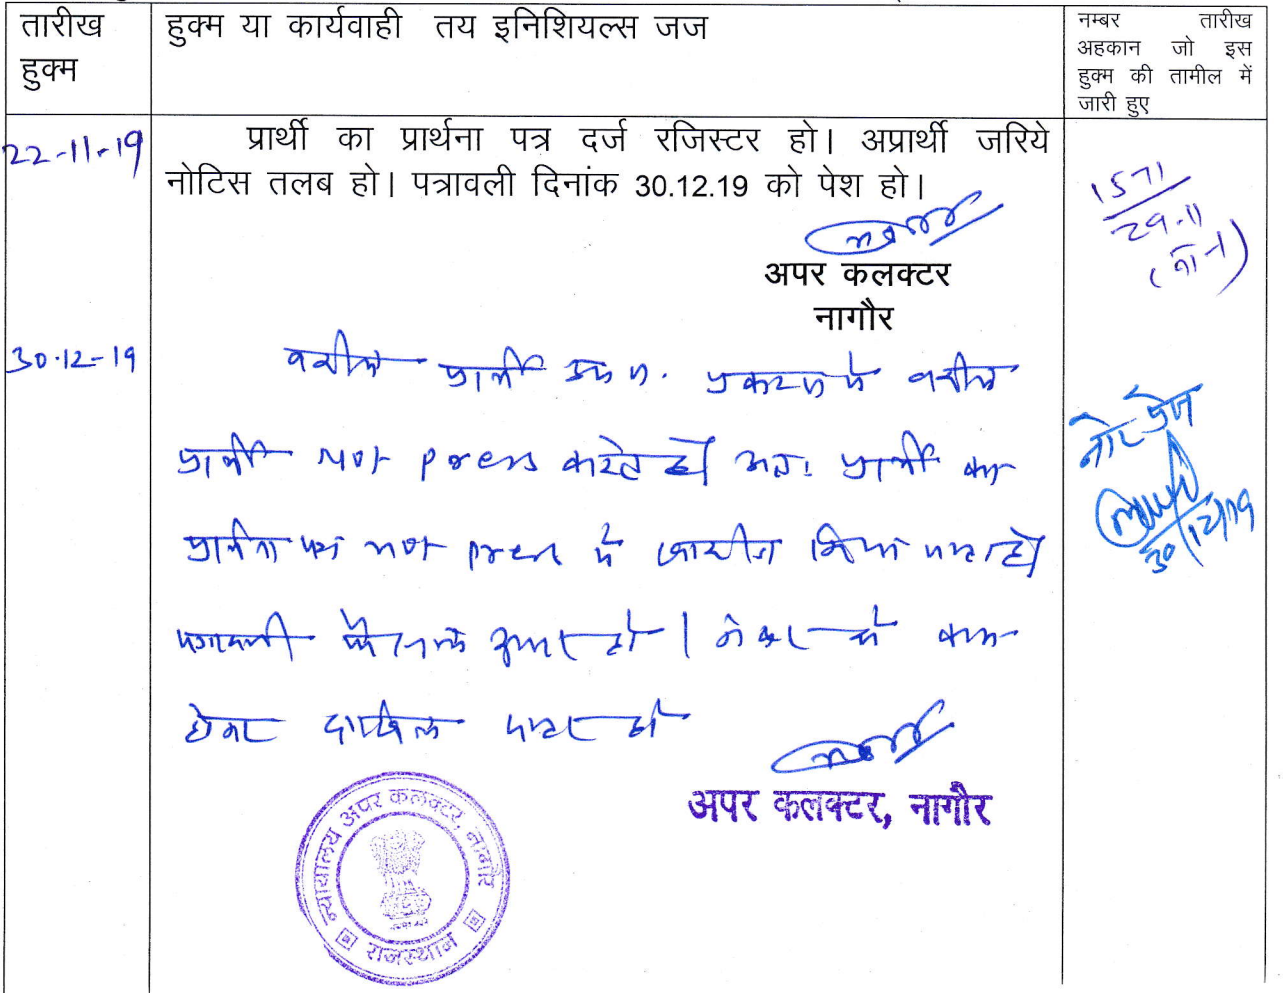 तारीख
हुक्म
हुक्म या कार्यवाही तय इनिशियल्स जज
नम्बर तारीख
अहकान जो इस
हुक्म की तामील में
जारी हुए
22-11-19
प्रार्थी का प्रार्थना पत्र दर्ज रजिस्टर हो। अप्रार्थी जरिये
नोटिस तलब हो। पत्रावली दिनांक 30.12.19 को पेश हो।
1571
29-11
अपर कलक्टर
नागौर
30.12-19
वकील प्रार्थी उप. प्रकरण में वकील
प्रार्थी not press करते है। अतः प्रार्थी का
प्रार्थना पत्र not press में खारीज किया जाता है।
पत्रावली फैसल शुमार हो। नम्बर से कम
होकर दाखिल दफ्तर हो
नोट प्रेस
30/12/19
अपर कलक्टर, नागौर
न्यायालय अपर कलक्टर, नागौर
राजस्थान